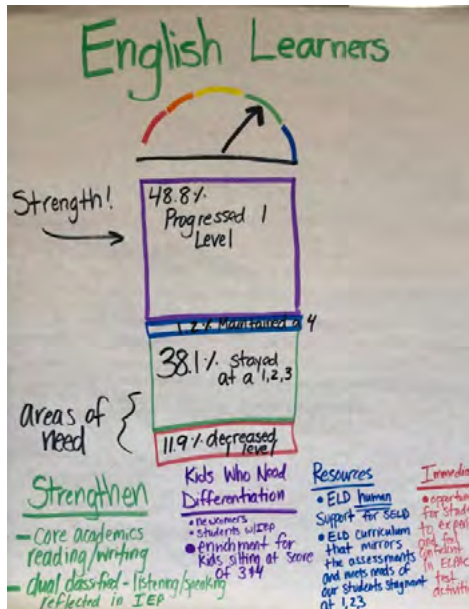 English Learners
Strength!
48.8%
Progressed 1
Level
1.2% Maintained a 4
38.1% stayed
at a 1,2,3
areas of
need
11.9% decreased
level
Strengthen
- core academics
reading/writing
- dual classified - listening/speaking
reflected in IEP
Kids Who Need
Differentiation
• newcomers
• students w/IEP
• enrichment for
Kids sitting at score
of 3+4
Resources
• ELD human
support for SELD
• ELD curriculum
that mirrors
the assessments
and meets needs of
our students stagnant
at 1,2,3
Immedia
for stude
to
and
in ELPAC
test
activit